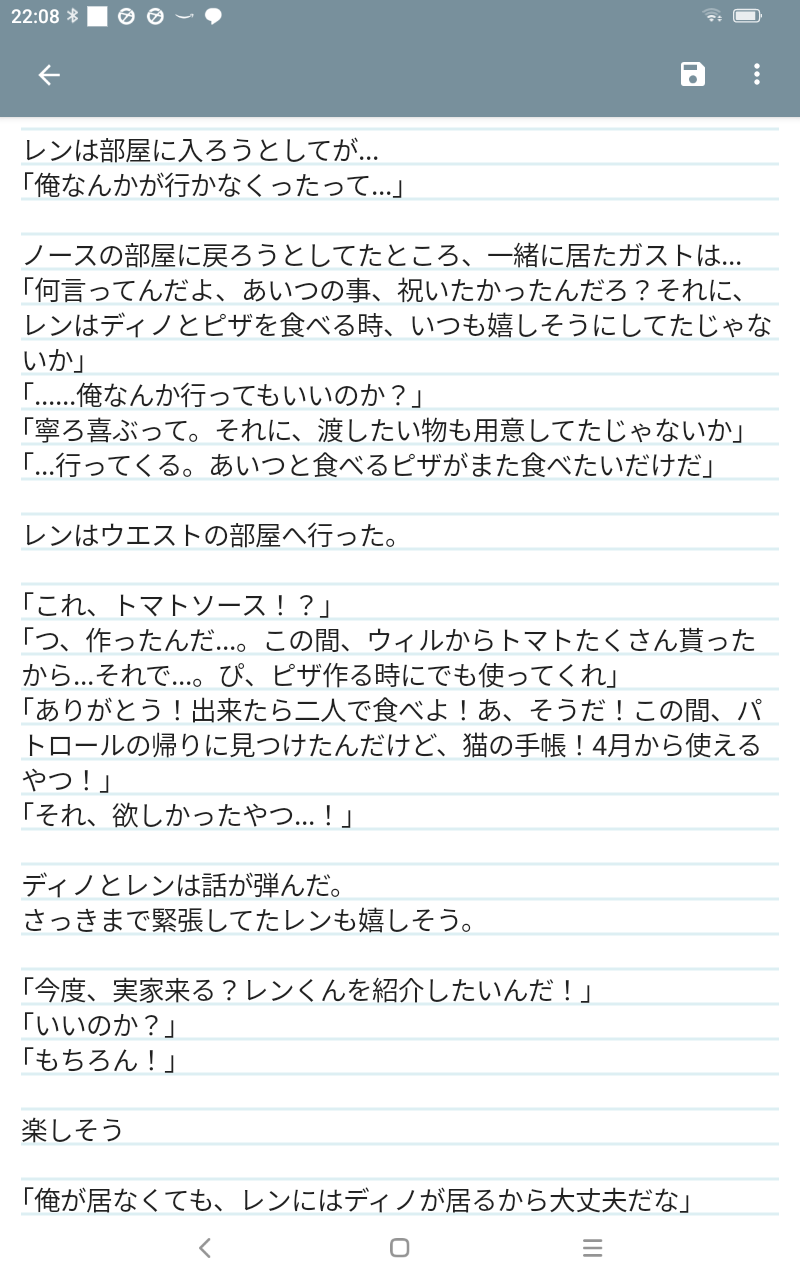 22:08
レンは部屋に入ろうとしてが…
「俺なんかが行かなくったって…」
ノースの部屋に戻ろうとしてたところ、一緒に居たガストは…
「何言ってんだよ、あいつの事、祝いたかったんだろ？それに、
レンはディノとピザを食べる時、いつも嬉しそうにしてたじゃな
いか」
「……俺なんか行ってもいいのか？」
「寧ろ喜ぶって。それに、渡したい物も用意してたじゃないか」
「…行ってくる。あいつと食べるピザがまた食べたいだけだ」
レンはウエストの部屋へ行った。
「これ、トマトソース！？」
「つ、作ったんだ…。この間、ウィルからトマトたくさん貰った
から…それで…。ぴ、ピザ作る時にでも使ってくれ」
「ありがとう！出来たら二人で食べよ！あ、そうだ！この間、パ
トロールの帰りに見つけたんだけど、猫の手帳！4月から使える
やつ！」
「それ、欲しかったやつ…！」
ディノとレンは話が弾んだ。
さっきまで緊張してたレンも嬉しそう。
「今度、実家来る？レンくんを紹介したいんだ！」
「いいのか？」
「もちろん！」
楽しそう
「俺が居なくても、レンにはディノが居るから大丈夫だな」